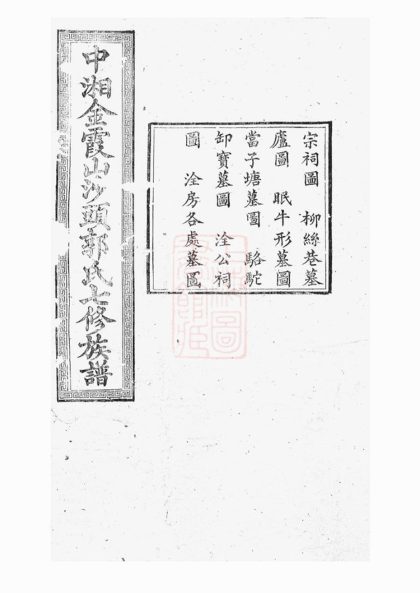 中湘金霞山沙頭郭氏七修族譜
宗祠圖 柳絲巷墓
廬圖 眠牛形墓圖
當子塘墓圖 駱駝
卸寶墓圖 洤公祠
圖 洤房各處墓圖